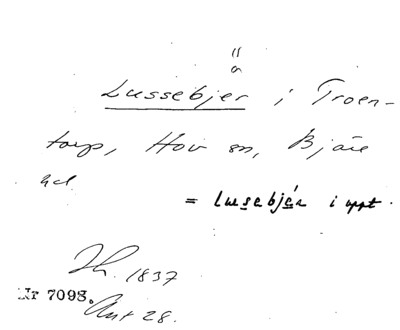 Lussebjer i Troen-
torp, Hov sn, Bjäre
hd
= lusebjér i uppt.
Th. 1837
Nr 7098.
Ant 28.